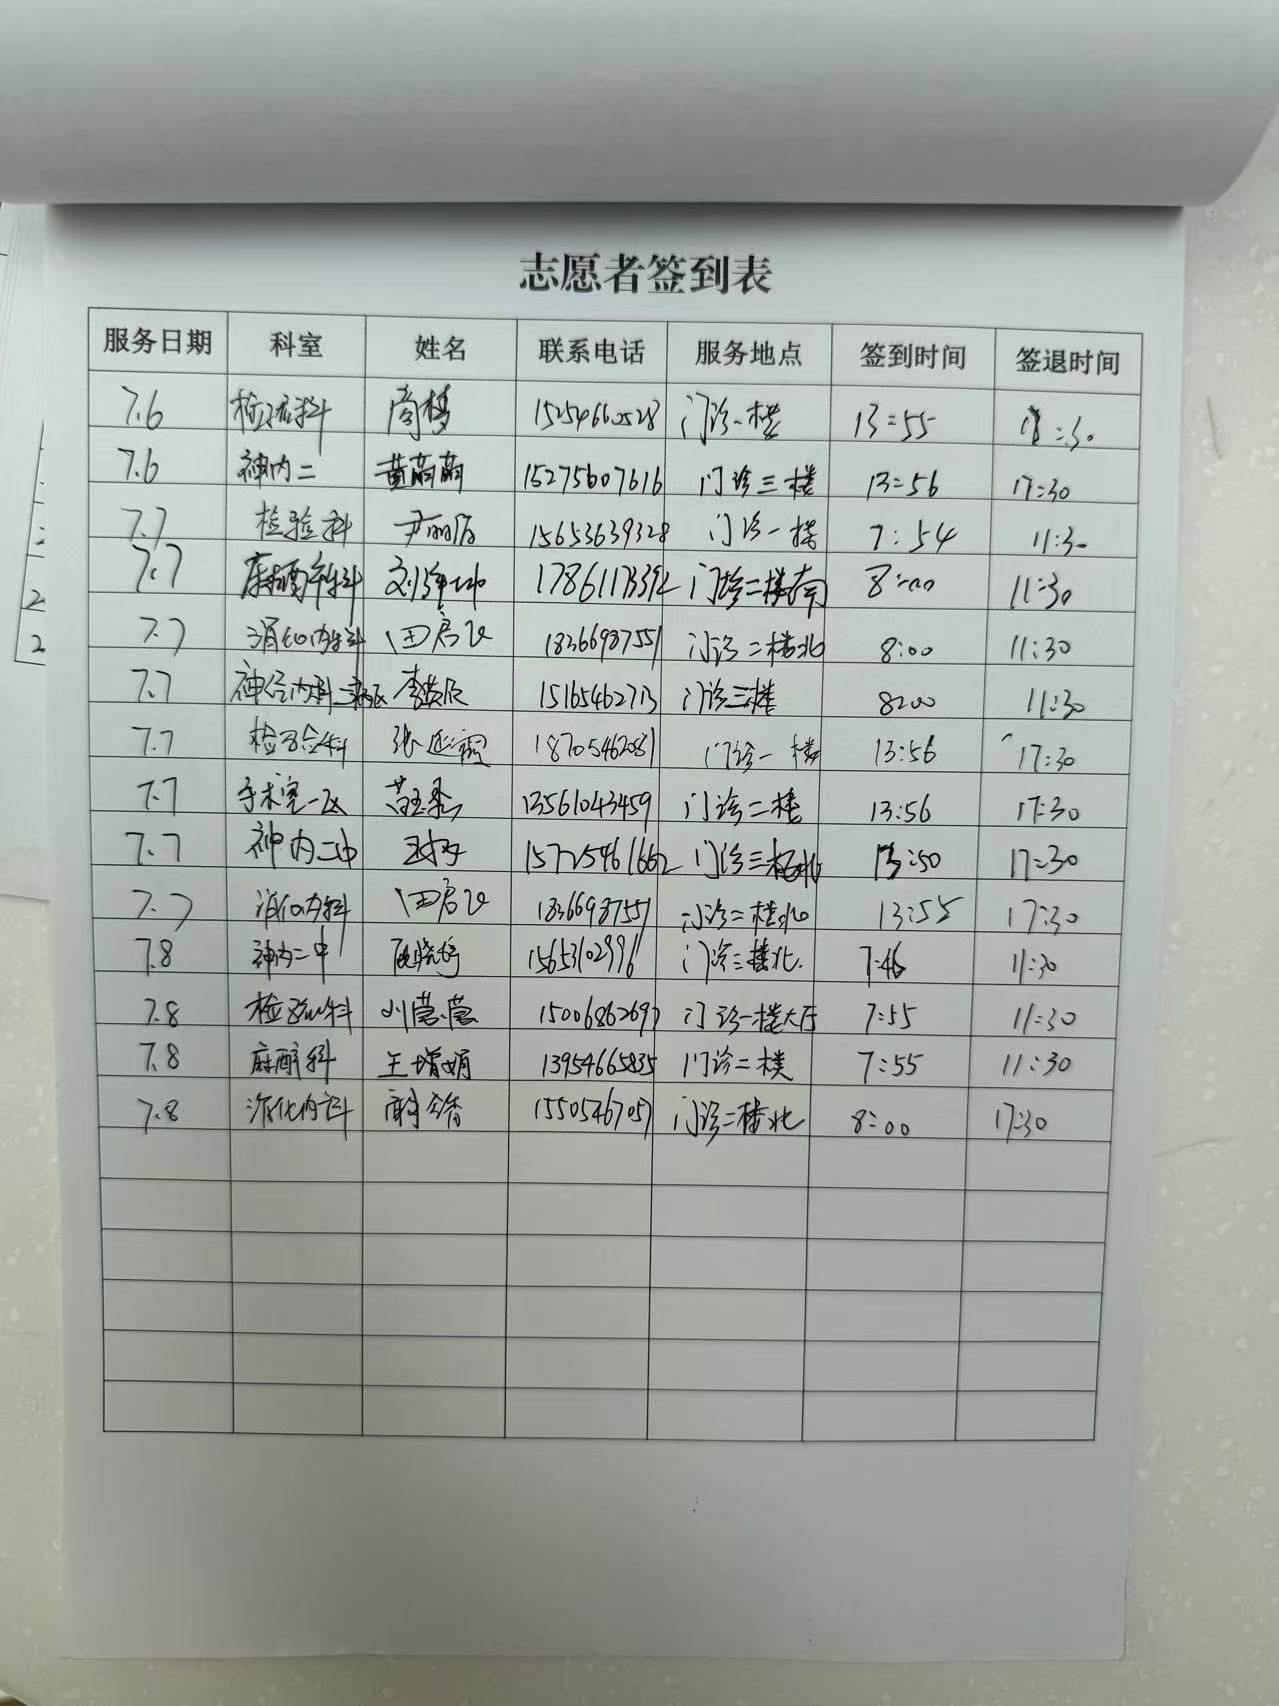 志愿者签到表
服务日期 科室 姓名 联系电话 服务地点 签到时间 签退时间
7.6 检验科 门诊一楼 13:55
7.6 神内二 黄蔚蔚 15275607616 门诊三楼 13:56 17:30
7.7 检验科 15653639328 门诊一楼 7:54 11:30
7.7 麻醉科 门诊二楼南 8:00 11:30
7.7 消化内科 18366987551 门诊二楼北 8:00 11:30
7.7 神经内科二病区 李 门诊三楼 8:00 11:30
7.7 检验科 张 门诊一楼 13:56 17:30
7.7 手术室一区 13561043459 门诊二楼 13:56 17:30
7.7 神内二中 15725461662 门诊三楼北 13:50 17:30
7.7 消化内科 18366987551 门诊二楼北 13:55 17:30
7.8 神内二中 15653102996 门诊三楼北. 7:46 11:30
7.8 检验科 刘莹莹 门诊一楼大厅 7:55 11:30
7.8 麻醉科 王增娟 13954665835 门诊二楼 7:55 11:30
7.8 消化内科 15505467057 门诊二楼北 8:00 17:30